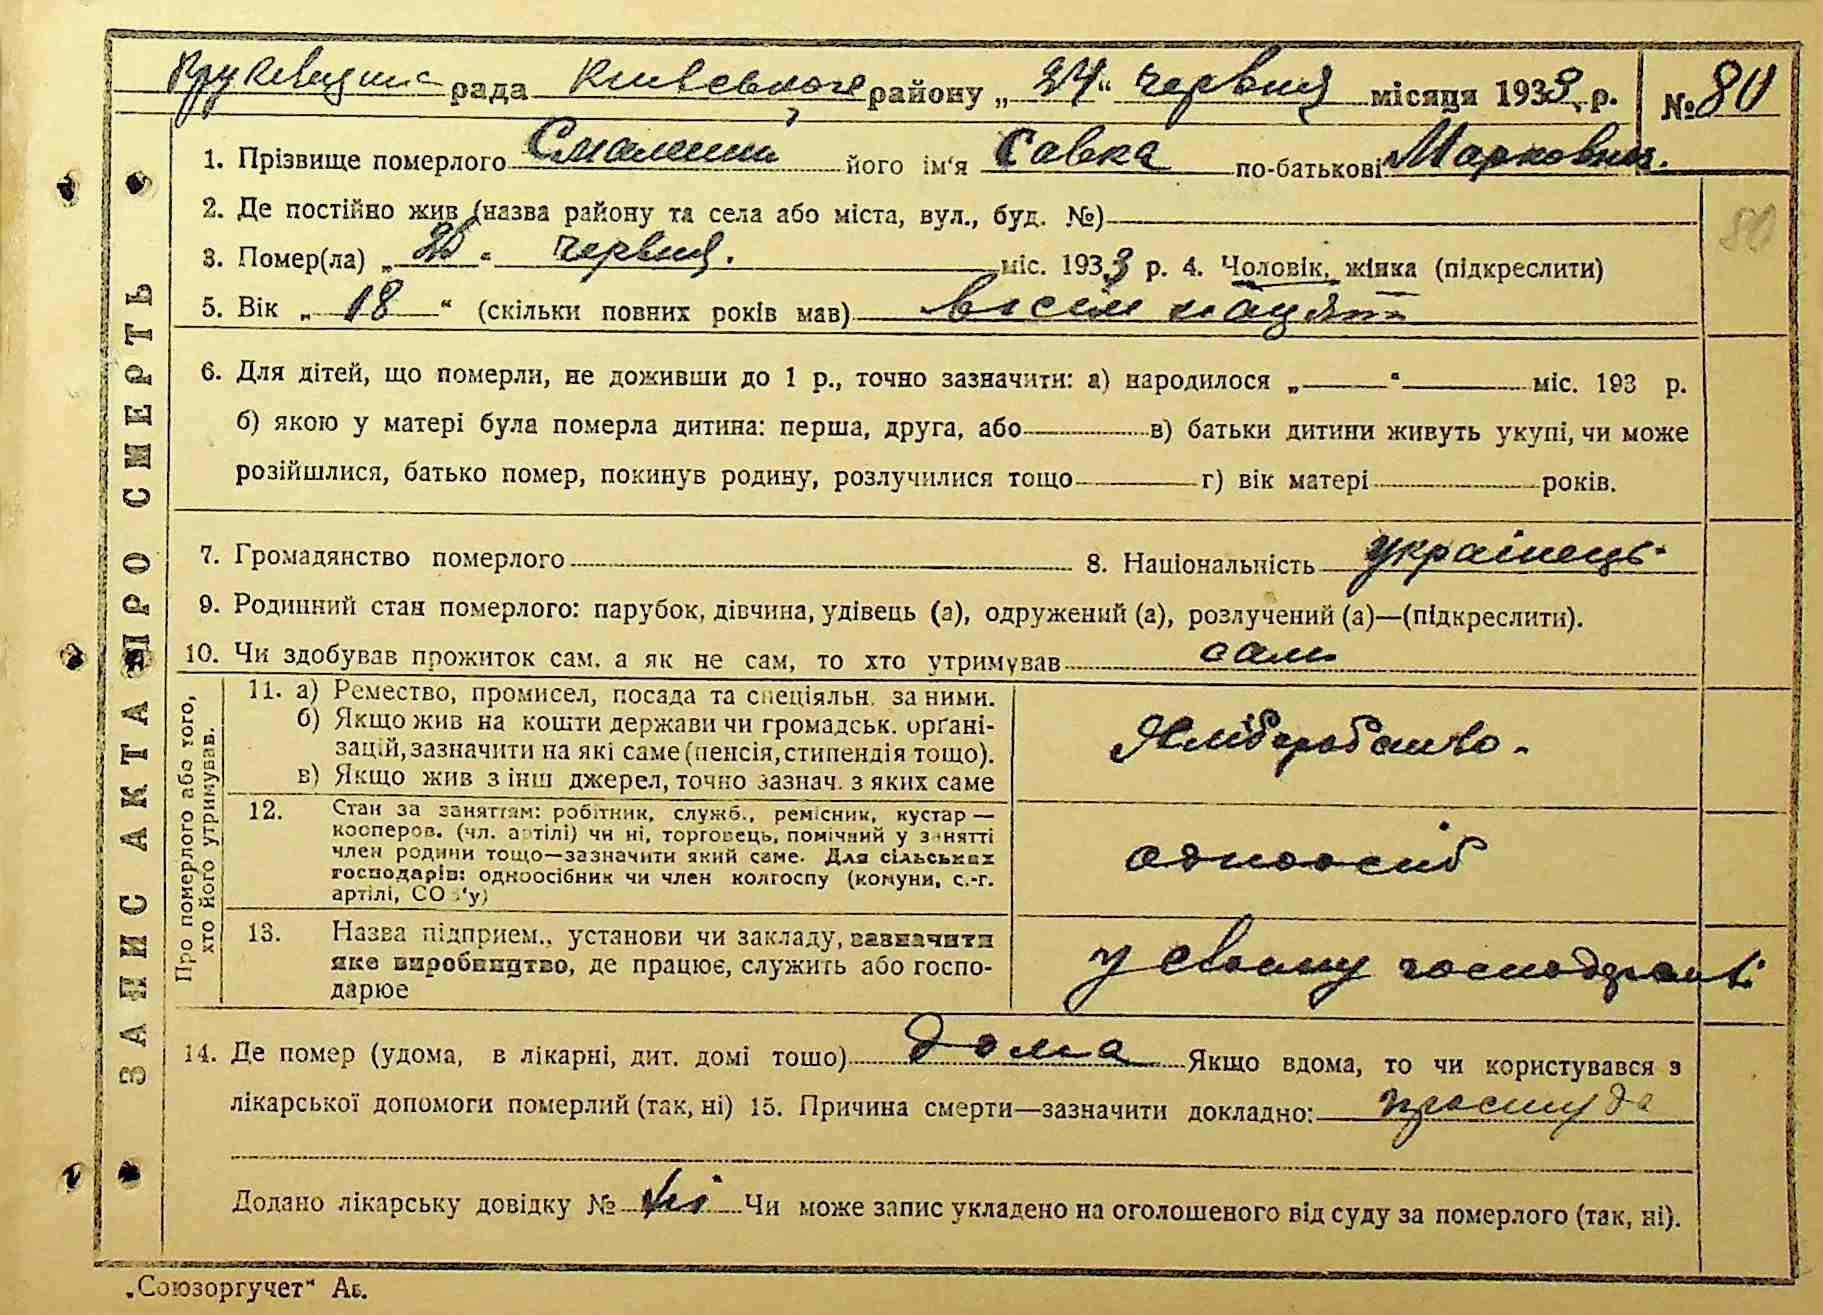 рада Київського району „24“ червня місяця 1933 р. № 80
ЗАПИС АКТА ПРО СМЕРТЬ
1. Прізвище померлого його ім'я Савка по-батькові Маркович.
2. Де постійно жив (назва району та села або міста, вул., буд. №)
80
3. Помер(ла) „20“ червня. міс. 1933 р. 4. Чоловік, жінка (підкреслити)
5. Вік „18“ (скільки повних років мав) вісімнацять
6. Для дітей, що померли, не доживши до 1 р., точно зазначити: а) народилося „ “ міс. 193 р.
б) якою у матері була померла дитина: перша, друга, або в) батьки дитини живуть укупі, чи може
розійшлися, батько помер, покинув родину, розлучилися тощо г) вік матері років.
7. Громадянство померлого 8. Національність українець.
9. Родинний стан померлого: парубок, дівчина, удівець (а), одружений (а), розлучений (а)—(підкреслити).
10. Чи здобував прожиток сам, а як не сам, то хто утримував сам
Про померлого або того,
хто його утримував.
11. а) Ремество, промисел, посада та спеціяльн. за ними.
б) Якщо жив на кошти держави чи громадськ. орґані-
зацій, зазначити на які саме (пенсія, стипендія тощо).
в) Якщо жив з інш джерел, точно зазнач. з яких саме
Хліборобство.
12. Стан за заняттям: робітник, служб., ремісник, кустар —
кооперов. (чл. артілі) чи ні, торговець, помічний у занятті
член родини тощо—зазначити який саме. Для сільських
господарів: одноосібник чи член колгоспу (комуни, с.-г.
артілі, СОЗ'у)
одноосіб
13. Назва підприєм., установи чи закладу, зазначити
яке виробництво, де працює, служить або госпо-
дарює
у своему господрстві
14. Де помер (удома, в лікарні, дит. домі тошо) дома Якщо вдома, то чи користувався з
лікарської допомоги померлий (так, ні) 15. Причина смерти—зазначити докладно: простуда
Додано лікарську довідку № ні Чи може запис укладено на оголошеного від суду за померлого (так, ні).
„Союзоргучет“ Ав.